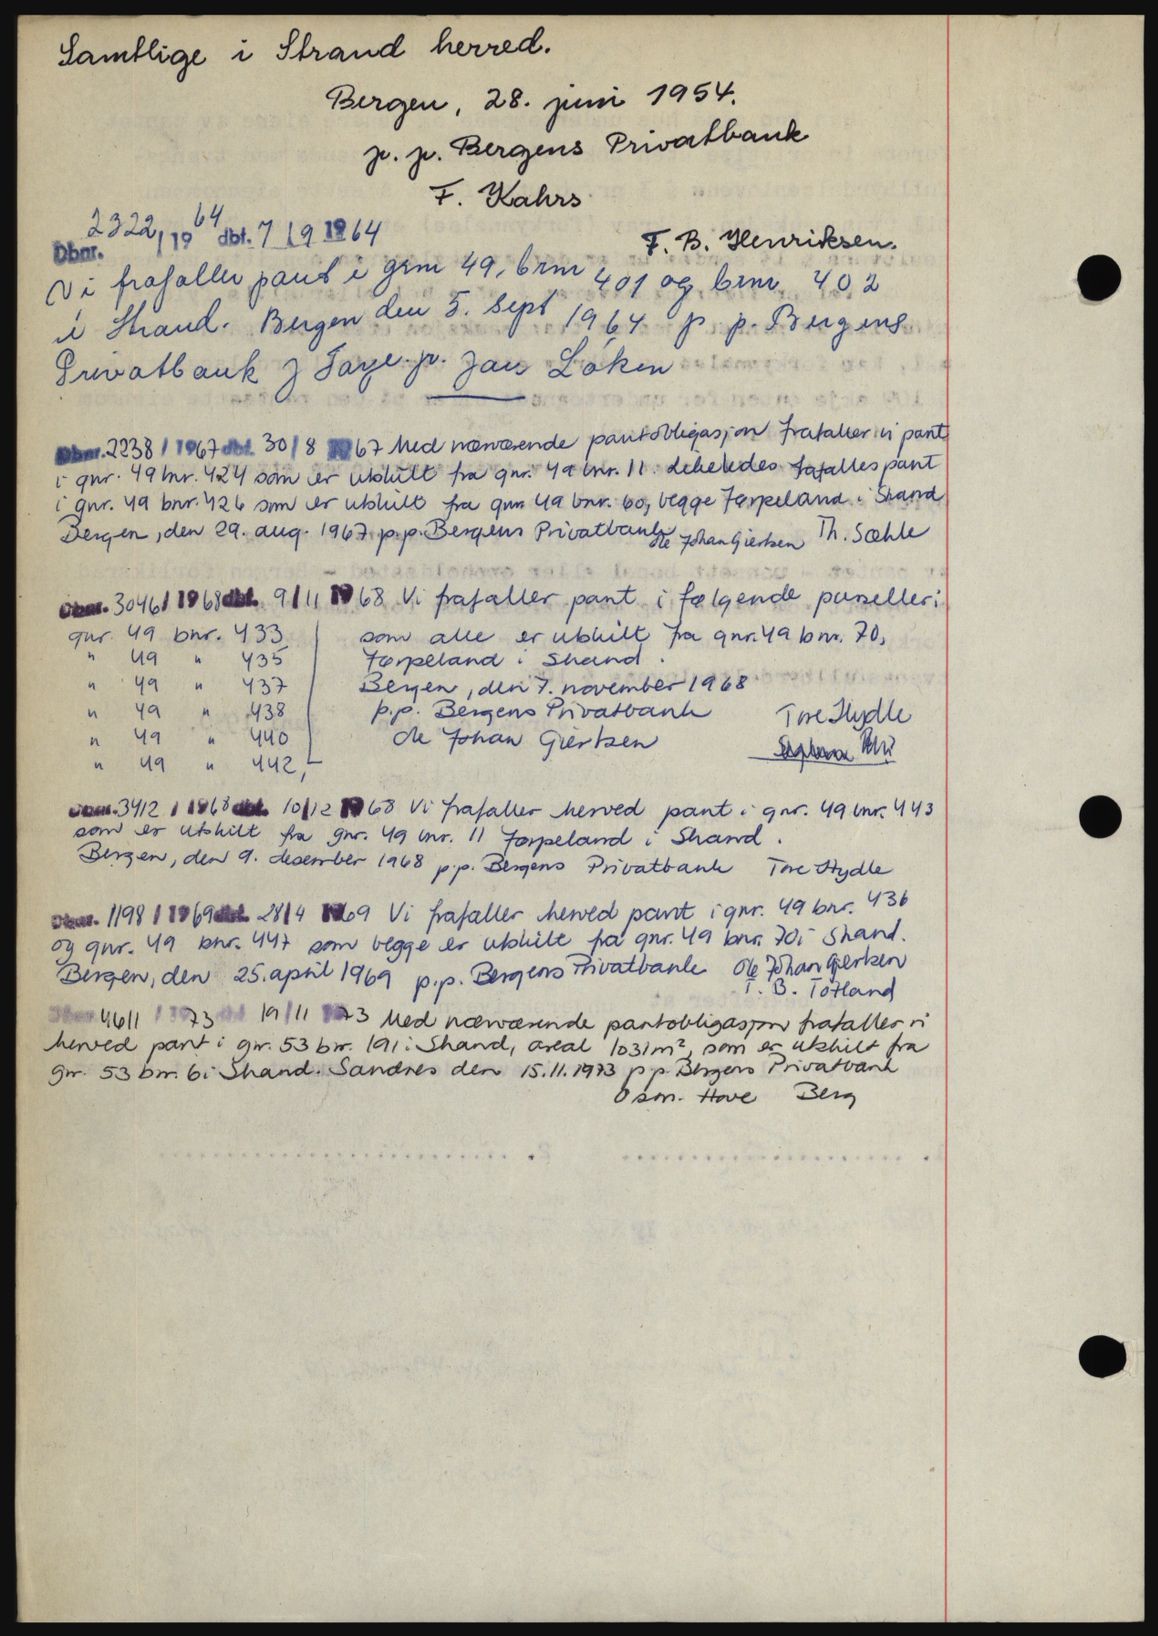 Samtlige i Strand herred.
Bergen, 28. juni 1954.
p. p. Bergens Privatbank
F. Kahrs
F. B. Henriksen.
Dbnr. 2322/1964 dbf. 7/9 1964
Vi frafaller pant i grn 49, brn 401 og brnr. 402
i Strand. Bergen den 5. Sept 1964 p. p. Bergens
Privatbank J Faye. p. Jan Løken
Dbnr. 2238/1967 dbf. 30/8 1967 Med nærværende pantobligasjon frafaller vi pant
i gnr. 49 bnr. 424 som er utskilt fra gnr. 49 bnr. 11. Likeledes fafalles pant
i gnr. 49 bnr. 426 som er utskilt fra gnr 49 bnr. 60, begge Jørpeland i Strand
Bergen, den 29. aug. 1967 p.p. Bergens Privatbank Ole Johan Giertsen Th. Sæhle
Dbnr. 3046/1968 dbf. 9/11 1968 Vi frafaller pant i følgende parseller:
gnr. 49 bnr. 433 som alle er utskilt fra gnr. 49 bnr. 70,
" 49 " 435 Jørpeland i Strand.
" 49 " 437 Bergen, den 7. november 1968
" 49 " 438 p.p. Bergens Privatbank Tore Hydle
" 49 " 440 Ole Johan Giertsen
" 49 " 442,-
Dbnr. 3412/1968 dbf. 10/12 1968 Vi frafaller herved pant i gnr. 49 bnr. 443
som er utskilt fra gnr. 49 bnr. 11 Jørpeland i Strand.
Bergen, den 9. desember 1968 p.p. Bergens Privatbank Tore Hydle
Dbnr. 1198/1969 dbf. 28/4 1969 Vi frafaller herved pant i gnr. 49 bnr. 436
og gnr. 49 bnr. 447 som begge er utskilt fra gnr. 49 bnr. 70 i Strand.
Bergen, den 25. april 1969 p.p. Bergens Privatbank Ole Johan Giertsen
T. B. Totland
Dbnr. 4611/1973 dbf. 19/11 1973 Med nærværende pantobligasjon frafaller vi
herved pant i gnr. 53 bnr. 191 i Strand, areal 1031m², som er utskilt fra
gnr. 53 bnr. 6 i Strand. Sandnes den 15.11.1973 p.p. Bergens Privatbank
Osm. Hove Berg